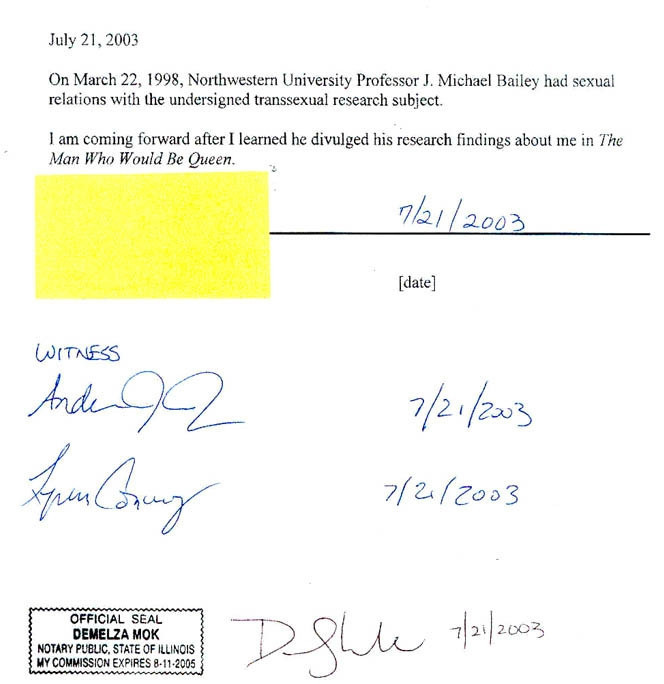 July 21, 2003
On March 22, 1998, Northwestern University Professor J. Michael Bailey had sexual
relations with the undersigned transsexual research subject.
I am coming forward after I learned he divulged his research findings about me in The
Man Who Would Be Queen.
7/21/2003
[date]
WITNESS
7/21/2003
Lynn Conway
7/21/2003
OFFICIAL SEAL
DEMELZA MOK
NOTARY PUBLIC, STATE OF ILLINOIS
MY COMMISSION EXPIRES 8-11-2005
7/21/2003